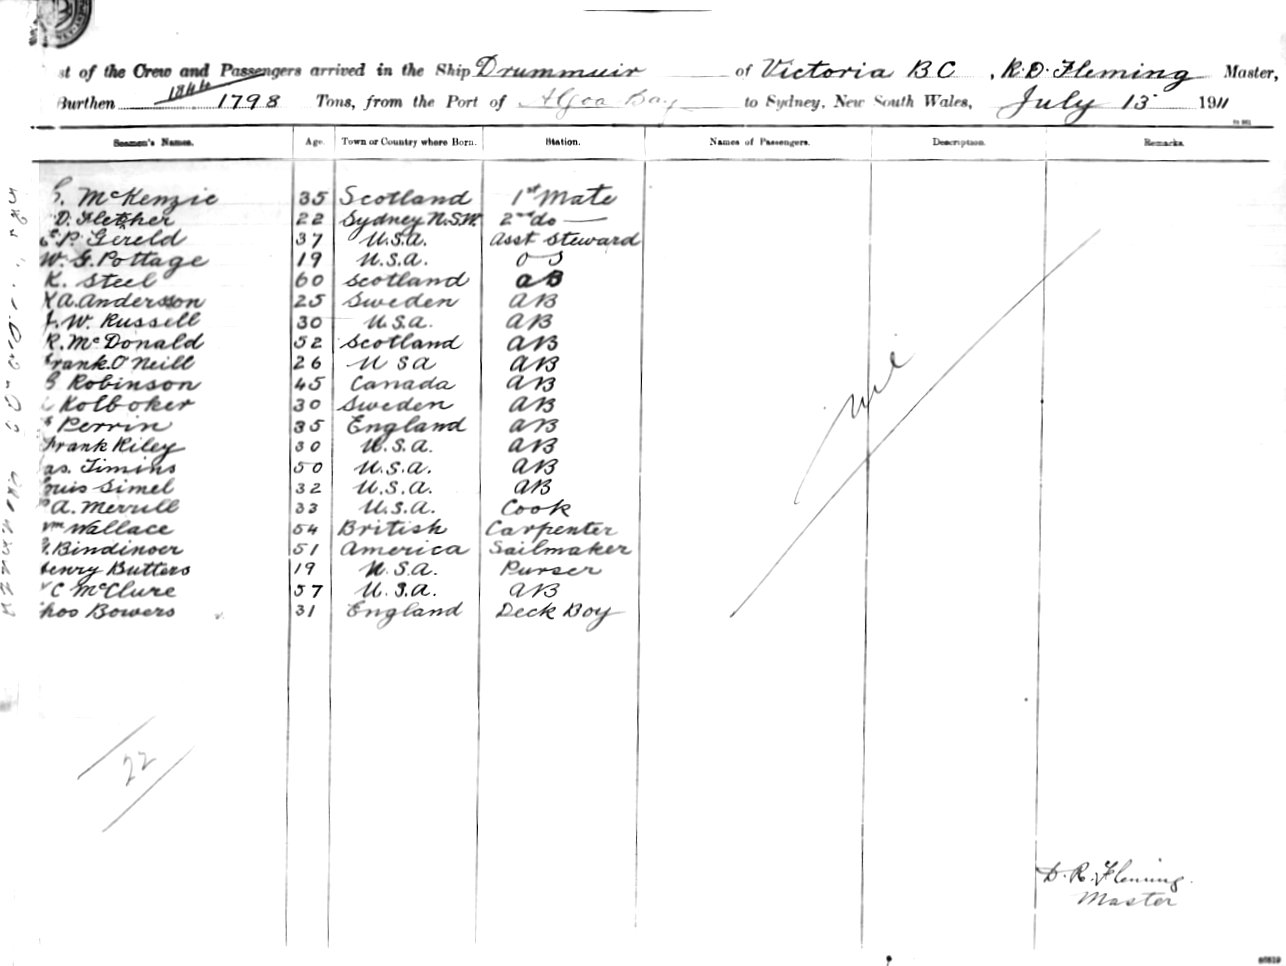 st of the Crew and Passengers arrived in the Ship Drummuir of Victoria B C, R. D. Fleming Master,
1844
Burthen 1798 Tons, from the Port of Algoa Bay to Sydney, New South Wales, July 13 1911
Seamen's Names. Age. Town or Country where Born. Station. Names of Passengers. Description. Remarks.
McKenzie 35 Scotland 1st Mate
D. Fletcher 22 Sydney N.S.W. 2nd do
P. Gereld 37 U.S.A. Asst Steward
W. G. Pottage 19 U.S.A. O S
K. Steel 60 Scotland AB
A. Andersson 25 Sweden AB
W. Russell 30 U.S.A. AB
R. McDonald 52 Scotland AB
rank O'Neill 26 U S A AB
Robinson 45 Canada AB
Kolboker 30 Sweden AB
Perrin 35 England AB
Frank Riley 30 U.S.A. AB
as. Timins 50 U.S.A. AB
ouis Simel 32 U.S.A. AB
A. Merrill 33 U.S.A. Cook
Wm Wallace 54 British Carpenter
Bindinoer 51 America Sailmaker
enry Butters 19 U.S.A. Purser
C McClure 57 U.S.A. AB
hos Bowers 31 England Deck Boy
nil
22
D. R. Fleming.
Master